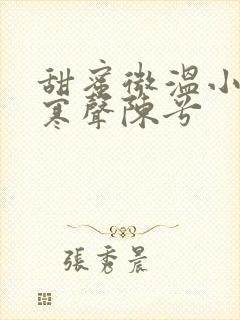 甜蜜微溫小
寒聲陳兮
張秀晨